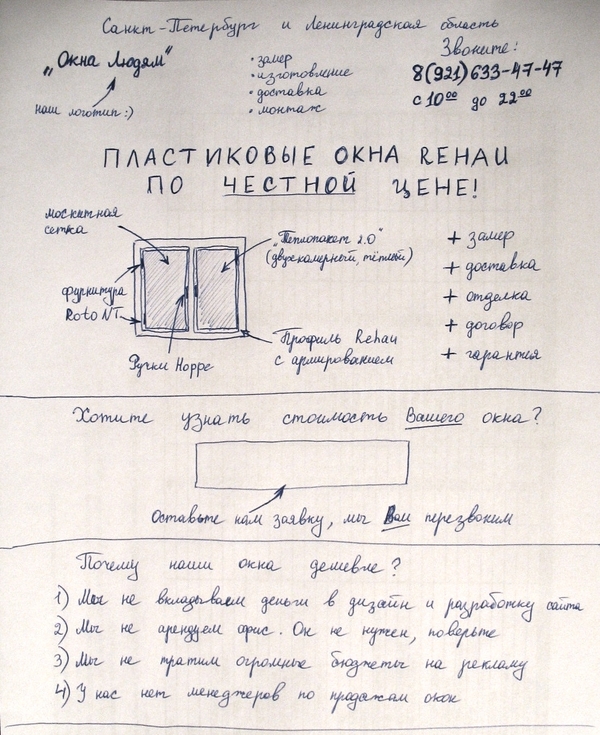 Санкт-Петербург и Ленинградская область
„Окна Людям"
наш логотип :)
• замер
• изготовление
• доставка
• монтаж
Звоните:
8(921)633-47-47
с 10⁰⁰ до 22⁰⁰
ПЛАСТИКОВЫЕ ОКНА REHAU
ПО ЧЕСТНОЙ ЦЕНЕ!
москитная
сетка
фурнитура
Roto NT
Ручки Hoppe
„Теплопакет 2.0"
(двухкамерный, тёплый)
Профиль Rehau
с армированием
+ замер
+ доставка
+ отделка
+ договор
+ гарантия
Хотите узнать стоимость Вашего окна?
Оставьте нам заявку, мы Вам перезвоним
Почему наши окна дешевле?
1) Мы не вкладываем деньги в дизайн и разработку сайта
2) Мы не арендуем офис. Он не нужен, поверьте
3) Мы не тратим огромные бюджеты на рекламу
4) У нас нет менеджеров по продажам окон